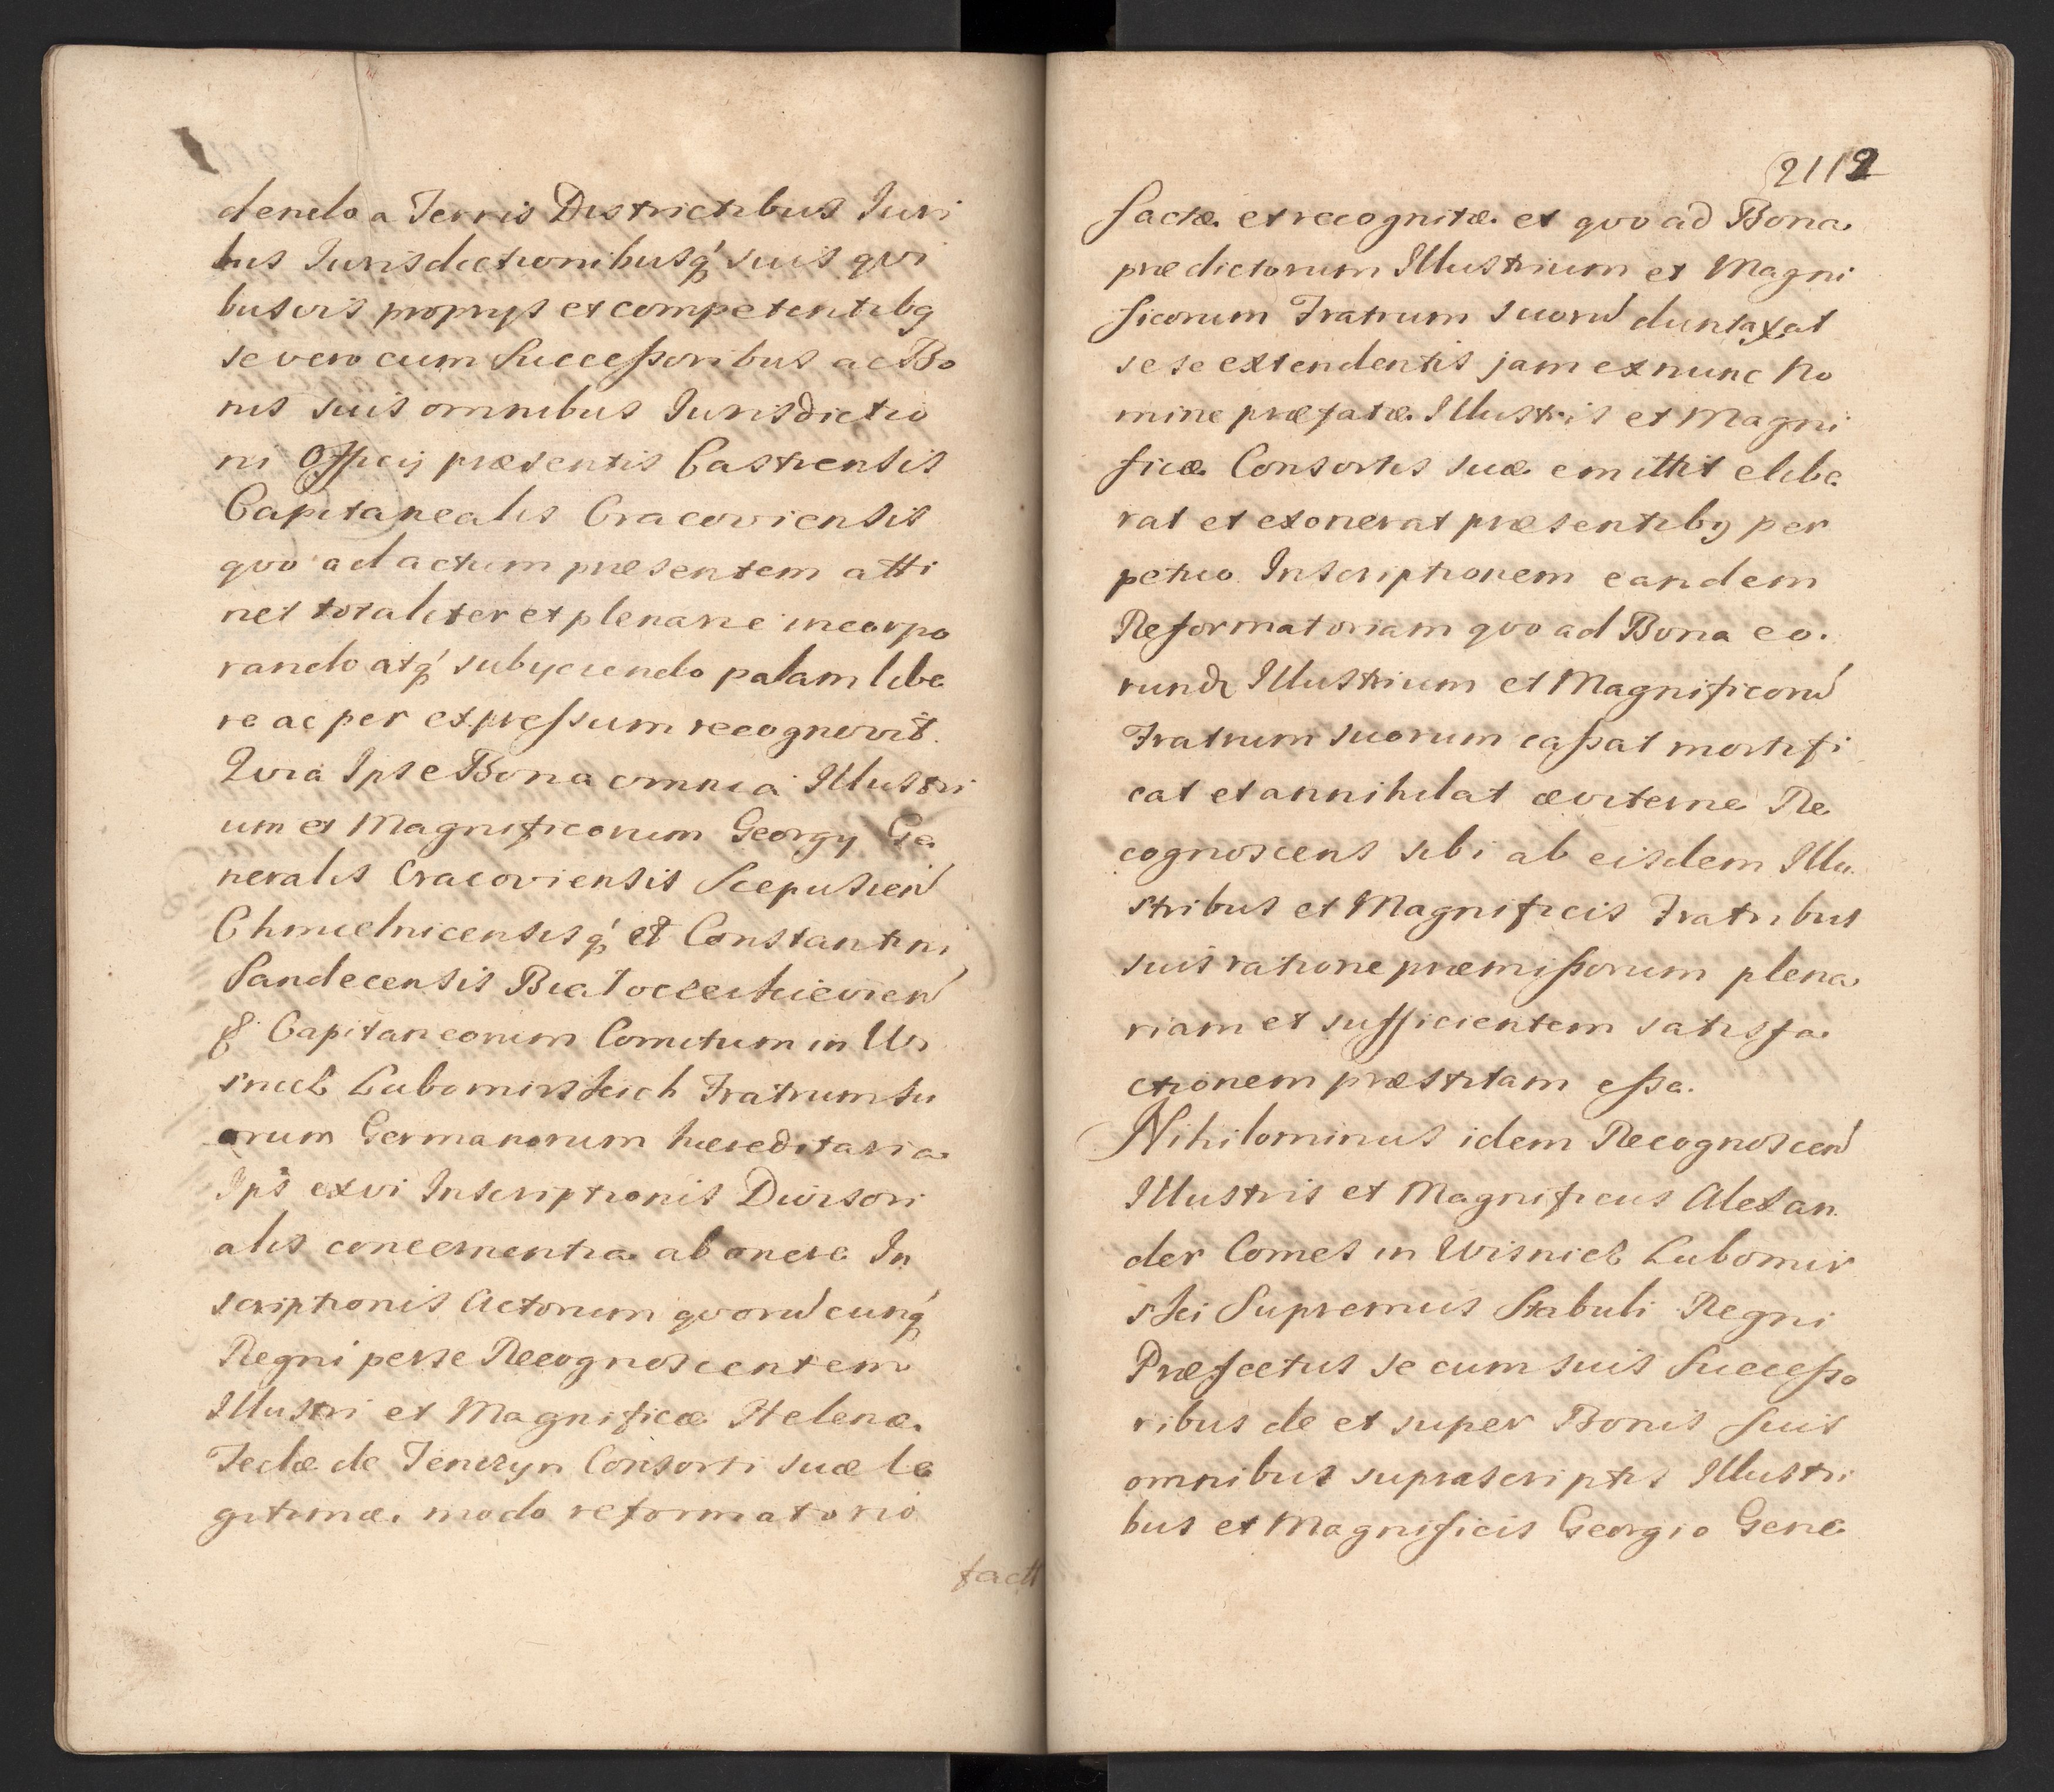 dendo a Terris Districtibus Juri
bus Jurisdictionibusq́ suis qvi
busvis proprys et competentibg
se vero cum Succeßoribus ac Bo
nis suis omnibus Jurisdictio
ni Officij præsentis Castrensis
Capitanealis Cracoviensis
qvo ad actum præsentem atti
net totaliter et plenarie incorpo
rando atq́ subyciendo palam libe
re ac per expreſsum recognovit.
Qvia Ipse Bona omnia Illustri
um et Magnificorum Georgy Ge
neralis Cracoviensis Scepusien
Chmielnicensisq́ et Constantini
Sandecensis Biatocerkievien
& Capitaneorum Comitum in Wi
snicz Lubomirskich Fratrum su
orum Germanorum hæreditaria
Ips ex vi Inscriptionis Divisori
alis concernentia ab onere In
scriptionis Actorum qvoru cunq́
Regni per se Recognoscentem
Illustri et Magnificæ Helenæ
Teclæ de Tenczyn Consorti suæ le
gitimæ modo reformatorio
fact
2112
factæ et recognitæ et qvo ad Bona
prædictorum Illustrium et Magni
ficorum Fratrum suoru duntaxat
sese extendentis jam ex nunc No
mine præfatæ Illustris et Magni
ficæ Consortis suæ emittit elibe
rat et exonerat præsentibg per
petuo Inscriptionem eandem
Reformatoriam qvo ad Bona eo
rund Illustrium et Magnificoru
Fratrum suorum caßat mortifi
cat et annihilat æviterne Re
cognoscens sibi ab eisdem Illu
stribus et Magnificis Fratribus
suis ratione præmißorum plena
riam et sufficientem satisfa
ctionem præstitam eße.
Nihilominus idem Recognoscen
Illustris et Magnificus Alexan
der Comes in Wisnicz Lubomir
ski Supremus Stabuli Regni
Præfectus se cum suis Succeßo
ribus de et super Bonis suis
omnibus suprascriptis Illustri
bus et Magnificis Georgio Gene